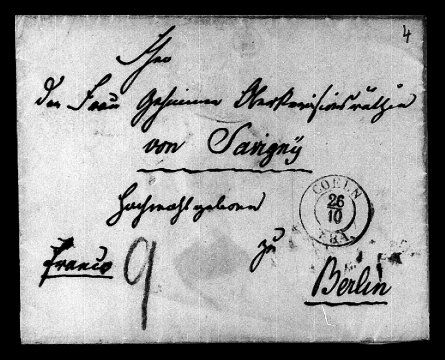 4
Der
der Frau Geheimen Oberrevisionsräthin
von Savigny
Hochwohlgeboren
COELN
26
10
zu
Franco
9
Berlin